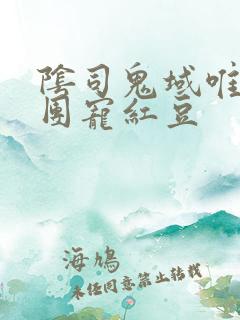 陰司鬼域唯
團寵紅豆
海鳩
未经同意禁止转载